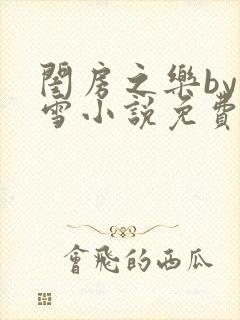 閨房之樂by
雪小說免費
會飛的西瓜